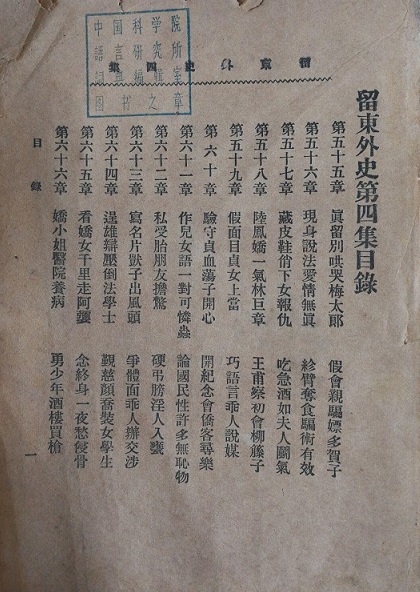 中国科学院
語言研究所
詞典編輯室
图书之章
留東外史四集
留東外史第四集目錄
第五十五章 眞留別哄哭梅太郎 假會親騙嫖多賀子
第五十六章 現身說法愛情無眞 紾臂奪食騙術有效
第五十七章 藏皮鞋俏下女報仇 吃急酒如夫人鬪氣
第五十八章 陸鳳嬌一氣林巨章 王甫察初會柳藤子
第五十九章 假面目貞女上當 巧語言乖人說媒
第六十章 驗守貞血蕩子開心 開紀念會僑客尋樂
第六十一章 作兒女語一對可憐蟲 論國民性許多無恥物
第六十二章 私受胎朋友擔驚 硬弔膀淫人入甕
第六十三章 寫名片獃子出風頭 爭體面乖人辦交涉
第六十四章 逞雄辯壓倒法學士 覲慈顏喬裝女學生
第六十五章 看嬌女千里走阿孃 念終身一夜愁侵骨
第六十六章 嬌小姐醫院養病 勇少年酒樓買槍
目錄
一